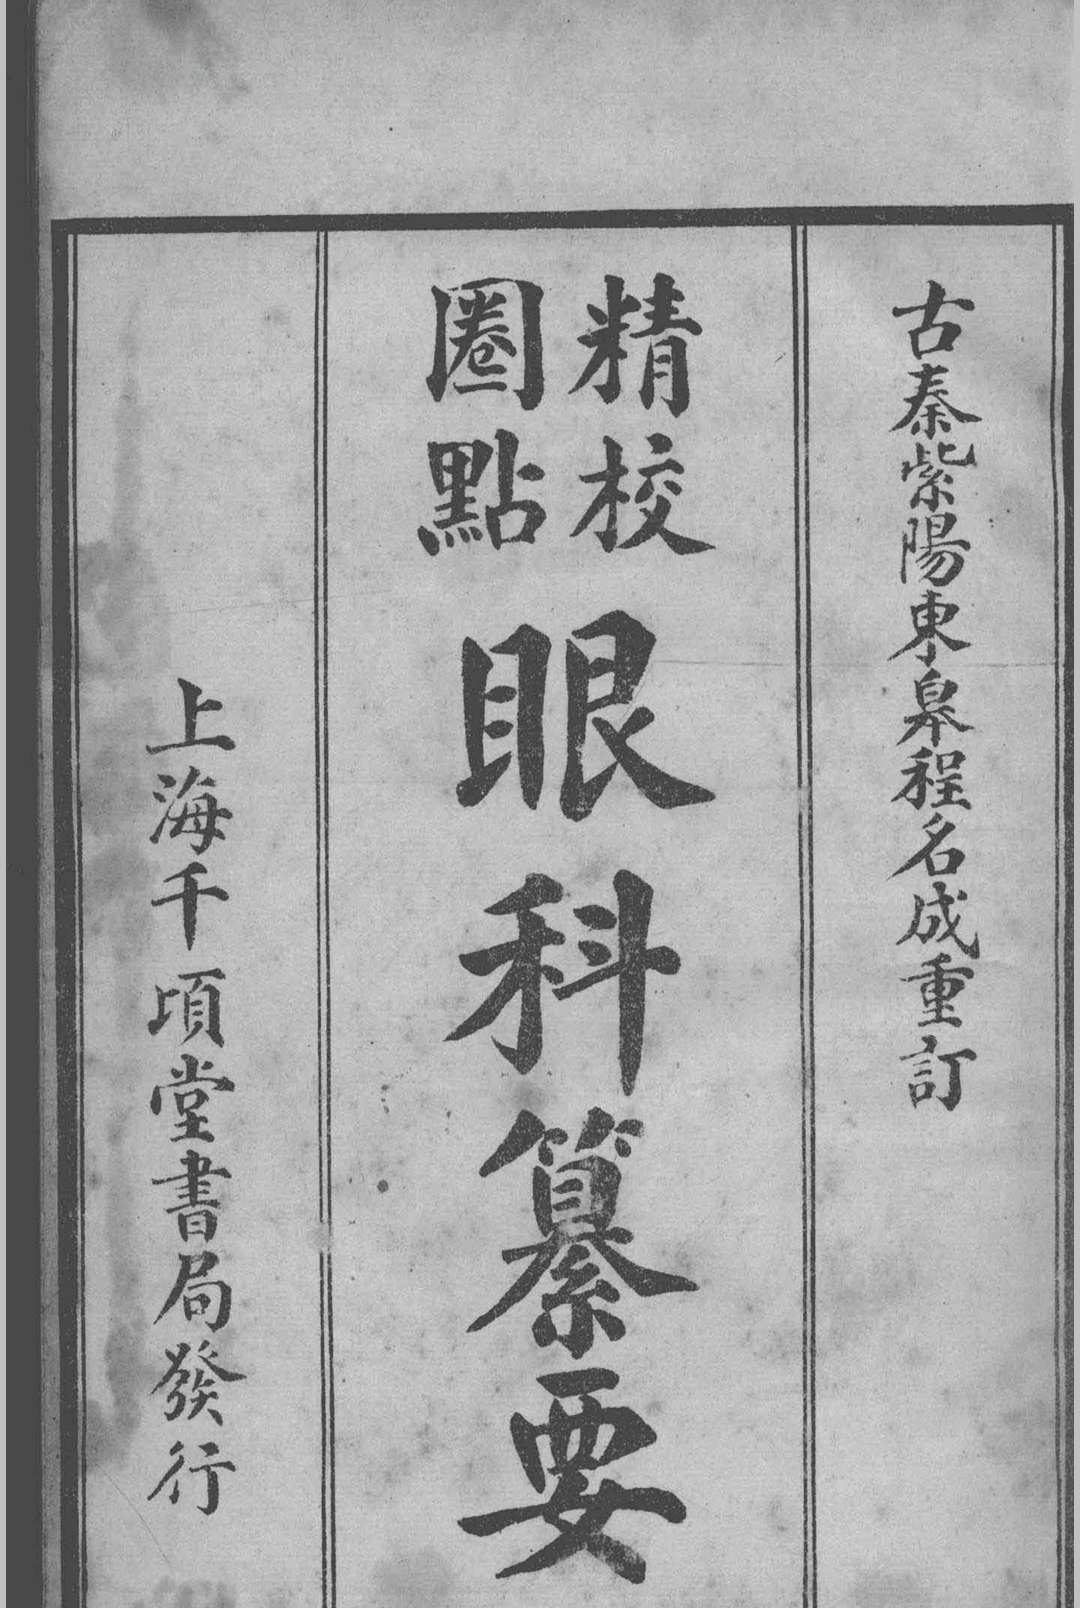 古秦紫陽東皋程名成重訂
精校
圈點
眼科纂要
上海千頃堂書局發行